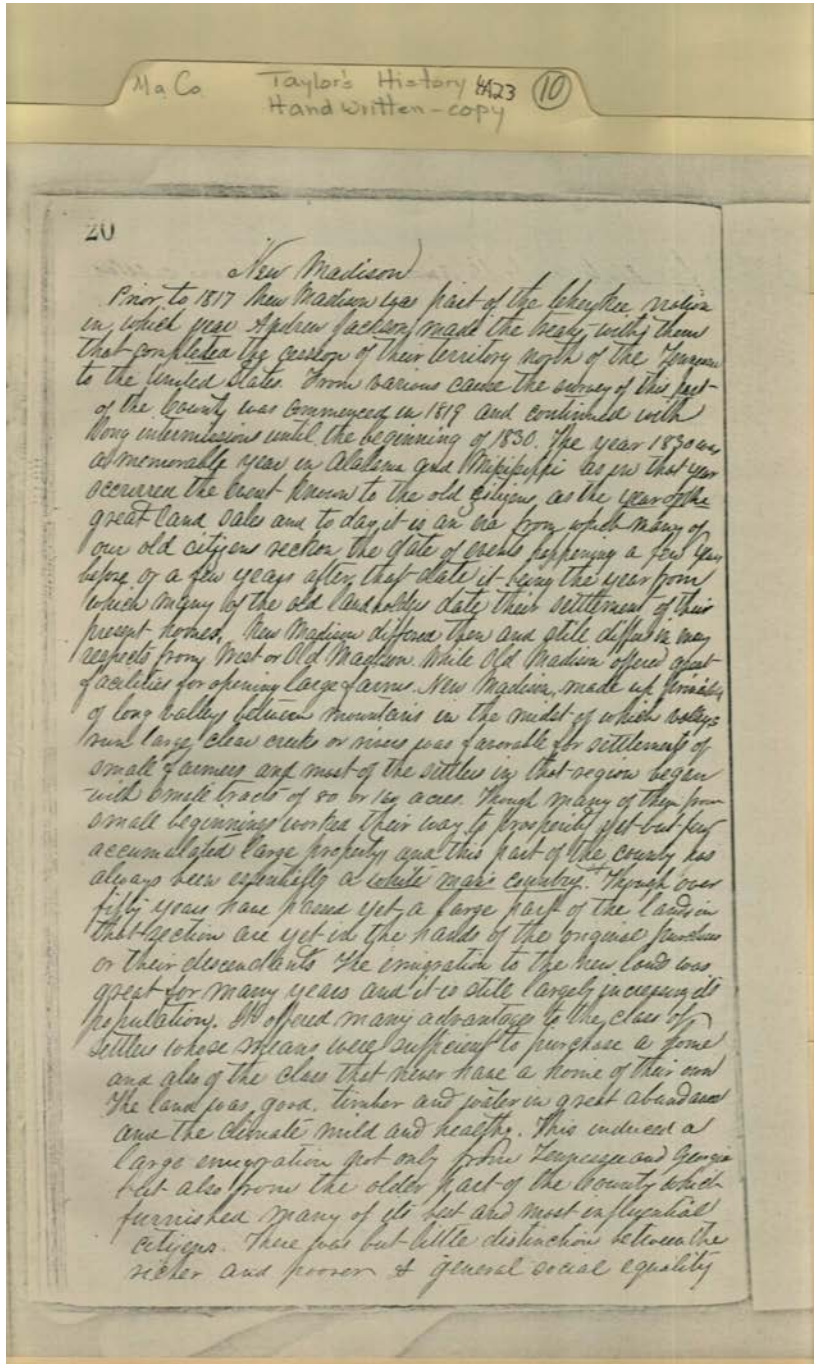 Ma Co. Taylor's History 4A23 10
Handwritten-copy
20
New Madison
Prior to 1817 New Madison was part of the Cherokee nation
in which year Andrew Jackson made the treaty with them
that completed the cession of their territory north of the Tennessee
to the United States. From various cause the survey of this part
of the County was commenced in 1819 and continued with
long intermissions until the beginning of 1830. The year 1830 was
a memorable year in Alabama and Mississippi as in that year
occurred the event known to the old citizens as the year of the
great land sales and to day it is an era from which many of
our old citizens reckon the date of events happening a few years
before or a few years after that date it being the year from
which many of the old landholders date their settlement of their
present homes. New Madison differed then and still differs in many
respects from West or Old Madison. While Old Madison offered great
facilities for opening large farms. New Madison, made up
of long valleys between mountains in the midst of which valleys
run large clear creeks or rivers was favorable for settlements of
small farmers and most of the settlers in that region began
with small tracts of 80 or 160 acres. Though many of them from
small beginnings worked their way to prosperity yet but few
accumulated large property and this part of the county has
always been essentially a white man's country. Though over
fifty years have passed yet a large part of the lands in
that section are yet in the hands of the original
or their descendants The emigration to the new land was
great for many years and it is still largely increasing its
population. It offered many advantages to the class of
settlers whose means were sufficient to purchase a home
and also of the class that never have a home of their own
The land was good, timber and water in great abundance
and the climate mild and healthy. This induced a
large emigration not only from Tennessee and Georgia
but also from the older part of the County which
furnished many of its best and most influential
citizens. There was but little distinction between the
richer and poorer & general social equality